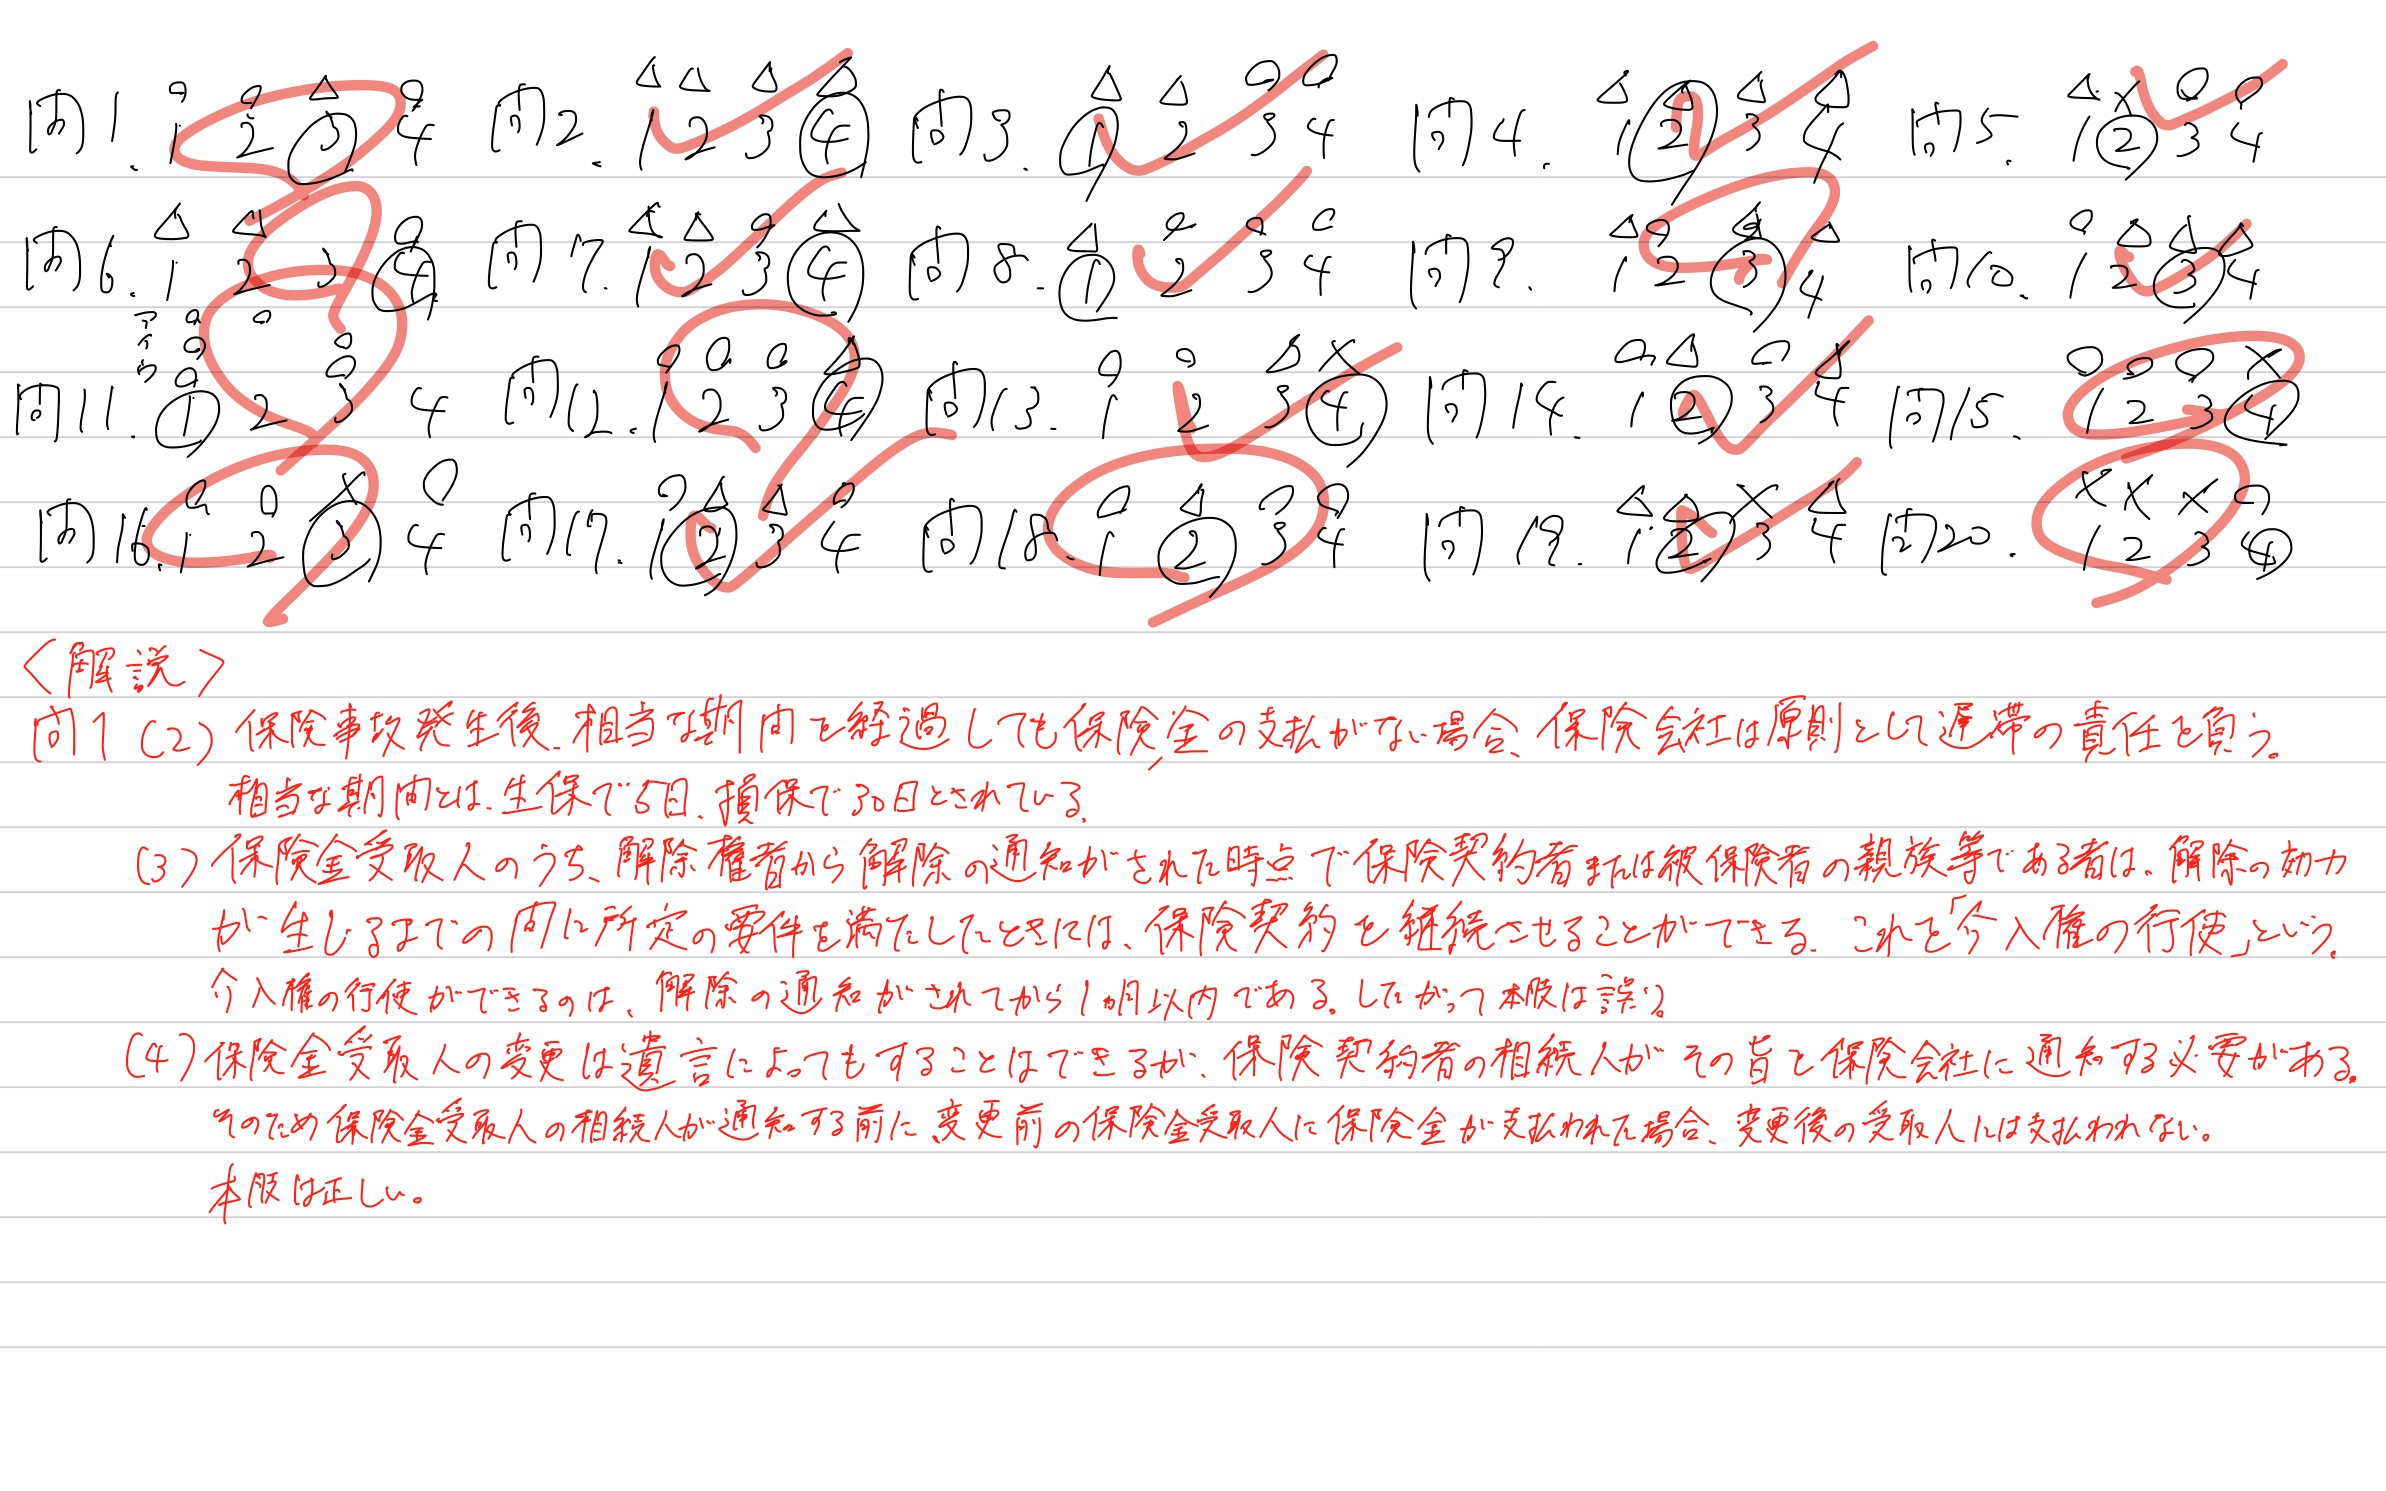 問1. 1 2 3 4 問2. 1 2 3 4 問3. 1 2 3 4 問4. 1 2 3 4 問5. 1 2 3 4
問6. 1 2 3 4 問7. 1 2 3 4 問8. 1 2 3 4 問9. 1 2 3 4 問10. 1 2 3 4
ア
イ
ウ
問11. 1 2 3 4 問12. 1 2 3 4 問13. 1 2 3 4 問14. 1 2 3 4 問15. 1 2 3 4
問16. 1 2 3 4 問17. 1 2 3 4 問18. 1 2 3 4 問19. 1 2 3 4 問20. 1 2 3 4
〈解説〉
問1 (2) 保険事故発生後、相当な期間を経過しても保険金の支払がない場合、保険会社は原則として遅滞の責任を負う。
相当な期間とは、生保で5日、損保で30日とされている。
(3) 保険金受取人のうち、解除権者から解除の通知がされた時点で保険契約者または被保険者の親族等である者は、解除の効力
が生じるまでの間に所定の要件を満たしたときには、保険契約を継続させることができる。これを「介入権の行使」という。
介入権の行使ができるのは、解除の通知がされてから1ヵ月以内である。したがって本肢は誤り。
(4) 保険金受取人の変更は遺言によってもすることはできるが、保険契約者の相続人がその旨を保険会社に通知する必要がある。
そのため保険金受取人の相続人が通知する前に、変更前の保険金受取人に保険金が支払われた場合、変更後の受取人には支払われない。
本肢は正しい。